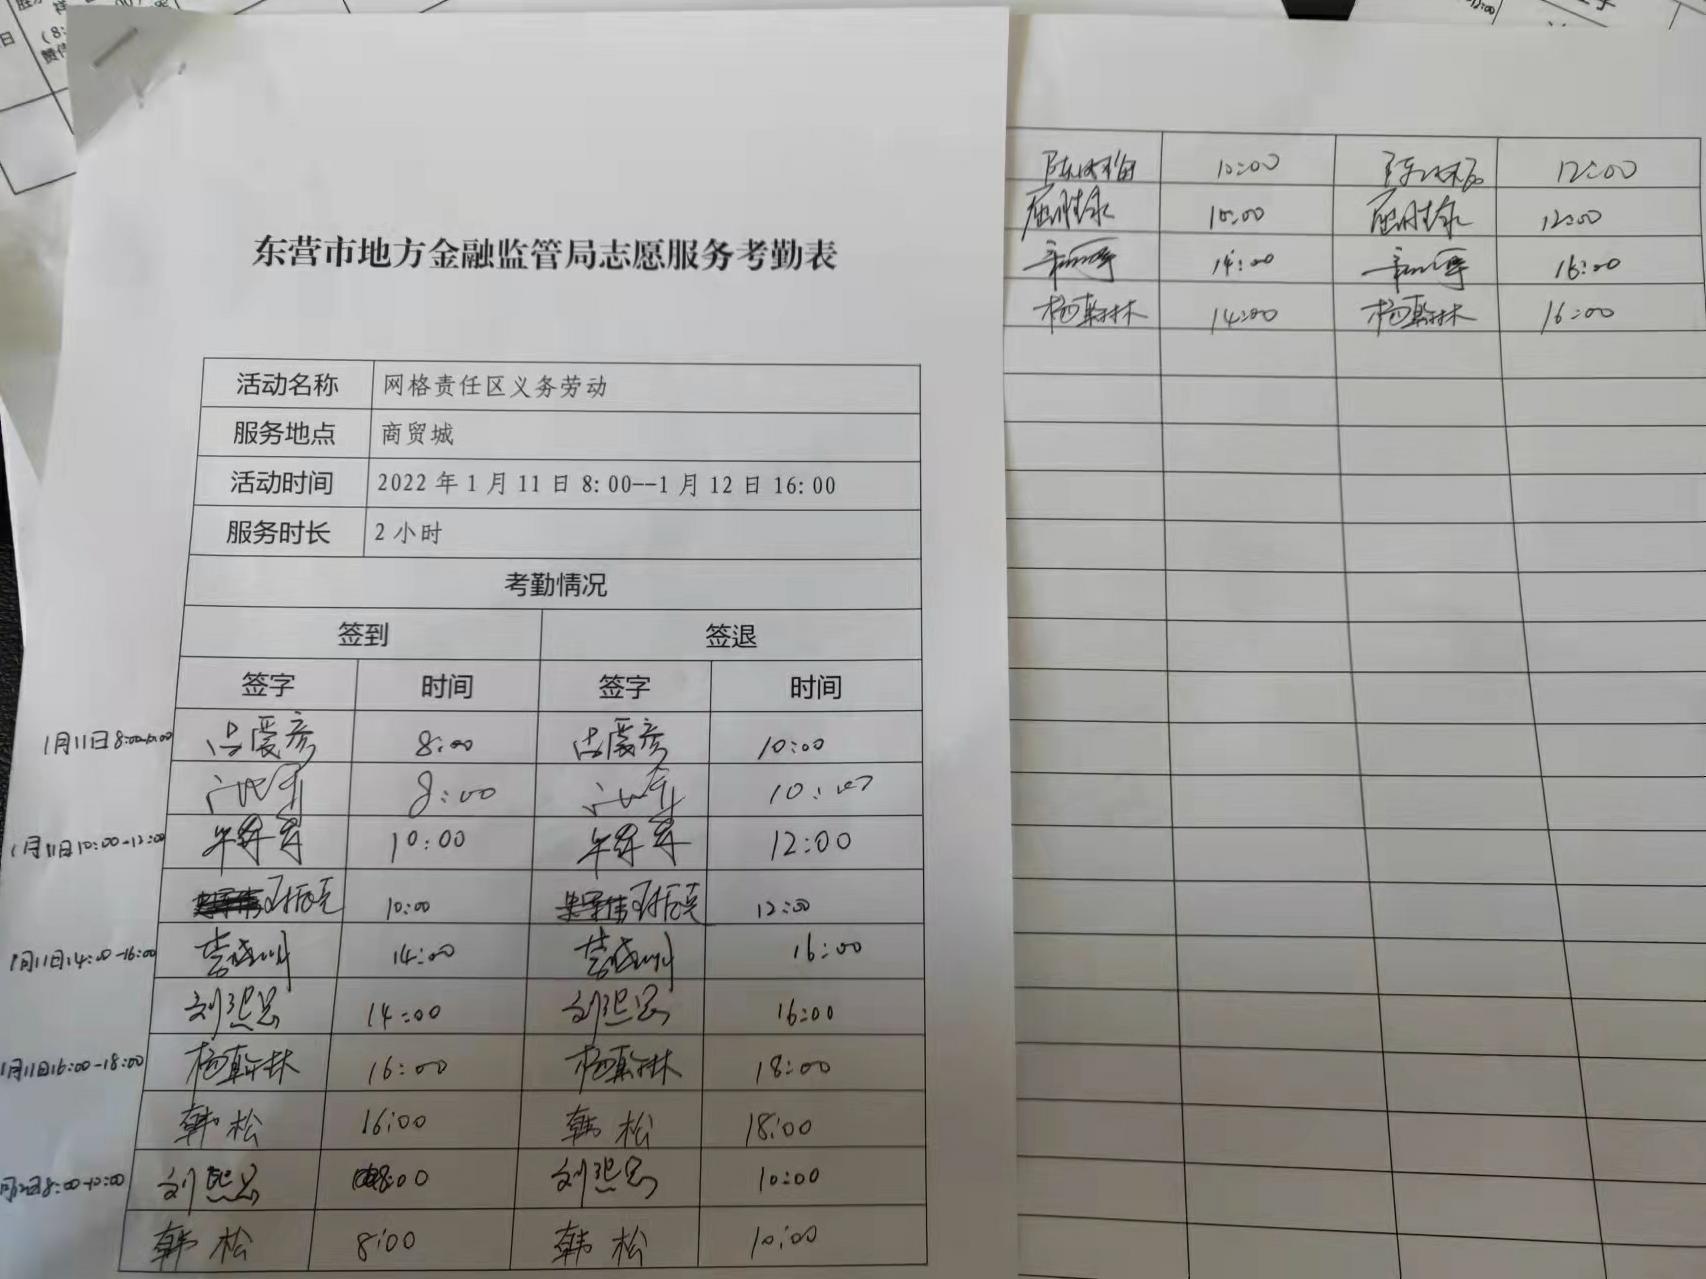 东营市地方金融监管局志愿服务考勤表
活动名称 网格责任区义务劳动
服务地点 商贸城
活动时间 2022年1月11日8:00--1月12日16:00
服务时长 2小时
考勤情况
签到 签退
签字 时间 签字 时间
1月11日8:00-10:00 吕爱彦 8:00 吕爱彦 10:00
8:00 10:00
1月11日10:00-12:00 10:00 12:00
10:00 12:00
1月11日14:00-16:00 14:00 16:00
刘熙昌 14:00 刘熙昌 16:00
1月11日16:00-18:00 杨翰林 16:00 杨翰林 18:00
韩松 16:00 韩松 18:00
月12日8:00-10:00 刘熙昌 8:00 刘熙昌 10:00
韩松 8:00 韩松 10:00
10:00 12:00
屈胜永 10:00 屈胜永 12:00
14:00 16:00
杨翰林 14:00 杨翰林 16:00